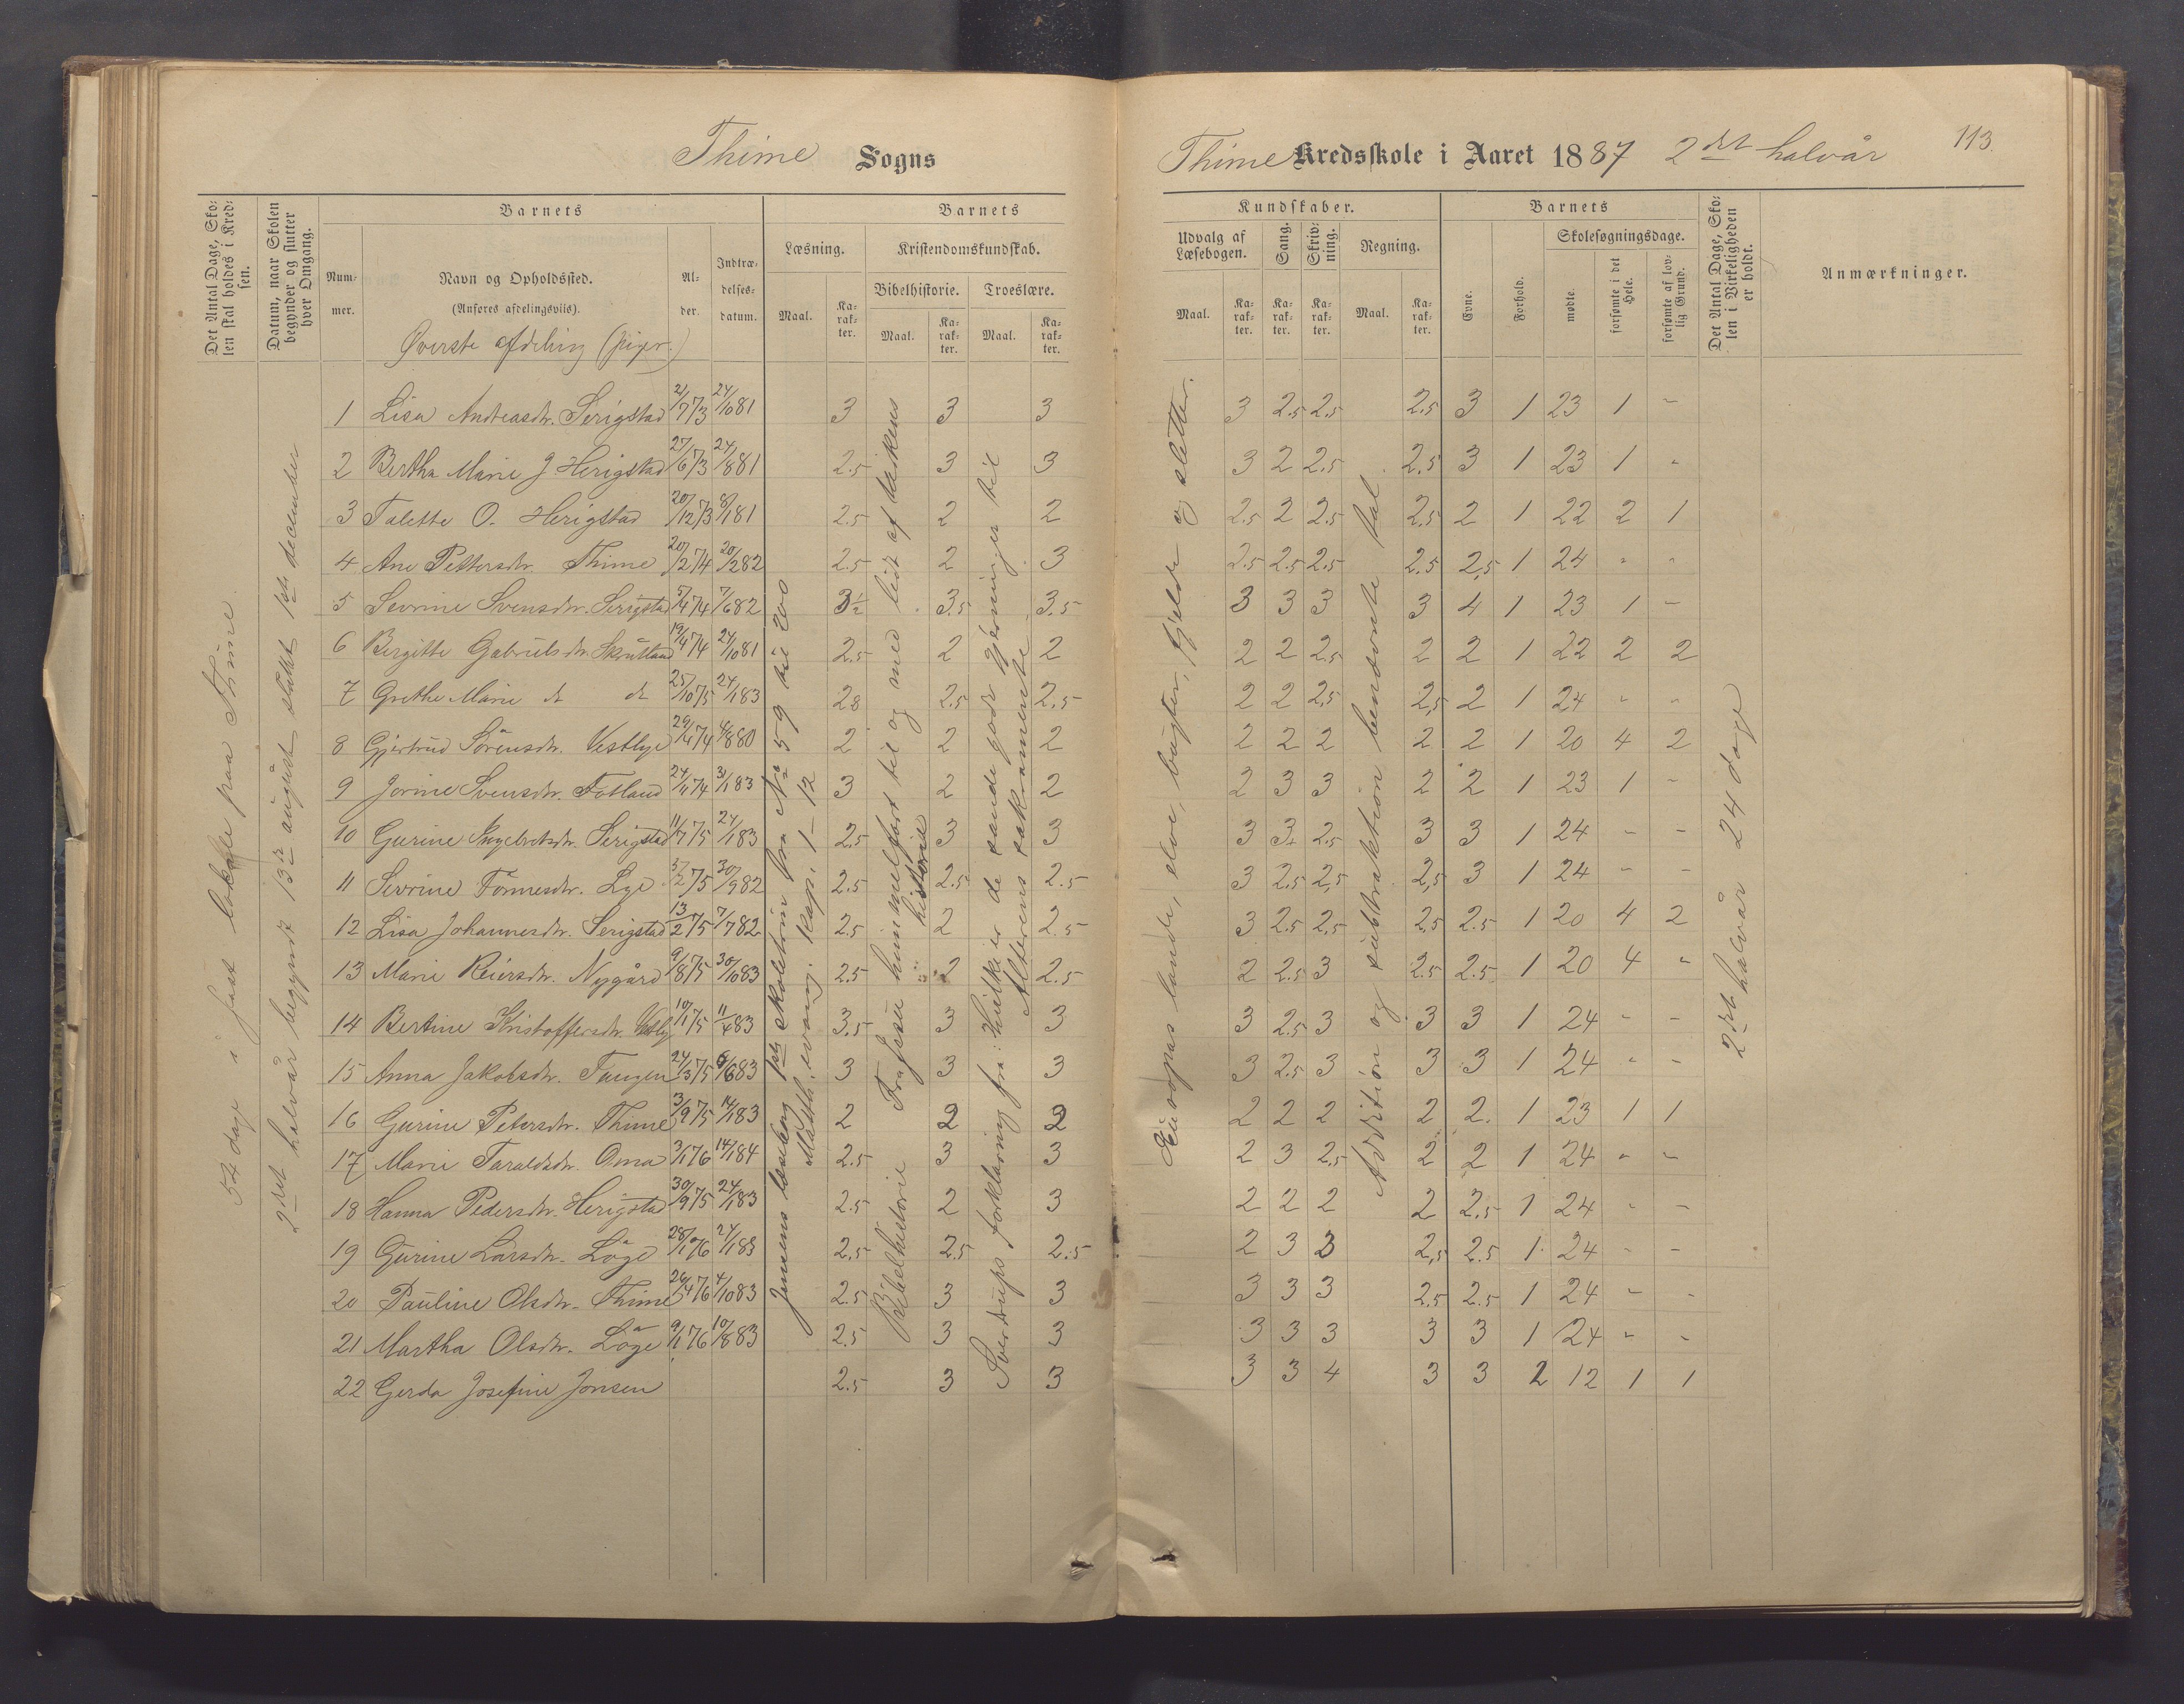 Thime Sogns
Thime Kredsskole i Aaret 1887 2det halvår 113.
Det Antal Dage, Skolen skal holdes i Kredsen.
Datum, naar Skolen begynder og slutter hver Omgang.
Barnets
Nummer.
Navn og Opholdssted.
(Anføres afdelingsviis).
Øverste afdeling (piger.)
Alder.
Indtrædelsesdatum.
Barnets
Læsning.
Maal.
Karakter.
Kristendomskundskab.
Bibelhistorie.
Maal.
Karakter.
Troeslære.
Maal.
Karakter.
Kundskaber.
Udvalg af Læsebogen.
Maal.
Karakter.
Sang.
Karakter.
Skrivning.
Karakter.
Regning.
Maal.
Karakter.
Barnets
Evne.
Forhold.
Skolesøgningsdage.
mødte.
forsømte i det Hele.
forsømte af lovlig Grund.
Det Antal Dage, Skolen i Virkeligheden er holdt.
Anmærkninger.
54 dage i fast lokale paa Thime.
2det halvår begyndt 13de august sluttet 1ste december
Jensens læsebog 1ste skoletrin fra No 59 til 200
Matth. evang. Kap. 1–12
Bibelhistorie Fra Jesu himmelfart til og med lidt af kirkens historie
Sverdrups forklaring fra: Hvilke er de sande gode gjerninger til Alterens sakramente
Europas lande, elve, bugter, fjelde og sletter.
Addition og subtraktion benævnte tal.
2det halvår 24 dage
1 Lisa Andreasdtr. Serigstad 21/7 73 24/10 81 3 3 3 3 2.5 2.5 2.5 3 1 23 1 -
2 Bertha Marie J Herigstad 27/6 73 24/8 81 2.5 3 3 3 2 2.5 2.5 3 1 23 1 -
3 Talette O. Herigstad 20/12 73 8/1 81 2.5 2 2 2.5 2 2.5 2.5 2 1 22 2 1
4 Ane Pettersdtr. Thime 20/2 74 20/2 82 2.5 2 3 2.5 2.5 2.5 2.5 2.5 1 24 - -
5 Sevrine Svensdtr. Serigstad 5/4 74 7/6 82 3½ 3.5 3.5 3 3 3 3 4 1 23 1 -
6 Birgitte Gabrielsdtr. Skrutland 19/4 74 24/10 81 2.5 2 2 2 2 2.5 2 2 1 22 2 2
7 Grethe Marie dt dt 25/10 75 24/1 83 2.8 2.5 2.5 2 2 2.5 2.5 2 1 24 - -
8 Gjertrud Sörensdtr. Vestlye 29/4 74 4/8 80 2 2 2 2 2 2 2 2 1 20 4 2
9 Jorine Svensdtr. Fotland 24/11 74 31/1 83 3 2 2 2 3 3 2 2 1 23 1 -
10 Gurine Ingebretsdtr. Serigstad 11/7 75 24/1 83 2.5 3 3 3 3+ 2.5 3 3 1 24 - -
11 Sevrine Tönnesdtr. Lye 5/2 75 30/9 82 2.5 2.5 2.5 3 2.5 2.5 2.5 3 1 24 - -
12 Lisa Johannesdtr. Serigstad 13/2 75 7/7 82 2.5 2 2.5 3 2.5 2.5 2.5 2.5 1 20 4 2
13 Marie Reiersdtr. Nygård 9/8 75 30/10 83 2.5 2 2.5 2 2.5 3 2.5 2.5 1 20 4 -
14 Bertine Kristoffersdtr. Vestly 10/11 75 11/4 83 3.5 3 3 3 2.5 3 3 3 1 24 - -
15 Anna Jakobsdtr. Tungen 24/3 75 6/6 83 3 3 3 3 2.5 3 3 3 1 24 - -
16 Gurine Petersdtr. Thime 3/9 75 14/1 83 2 2 2 2 2 2 2 2. 1 23 1 1
17 Marie Taraldsdtr. Oma 3/1 76 14/1 84 2.5 3 3 2 3 2.5 2 2 1 24 - -
18 Hanna Pedersdtr. Herigstad 30/9 75 24/1 83 2.5 2 3 2 2 2 2 2.5 1 24 - -
19 Gurine Larsdtr. Löge 28/1 76 24/1 83 2.5 2.5 2.5 2 3 3 2.5 2.5 1 24 - -
20 Pauline Olsdtr. Thime 26/4 76 4/10 83 2.5 3 3 3 3 3 2.5 2.5 1 24 - -
21 Martha Olsdtr. Löge 9/1 76 10/8 83 2.5 3 3 3 3 3 3 3 1 24 - -
22 Gerda Josefine Jonsen 2.5 3 3 3 3 4 3 3 2 12 1 1